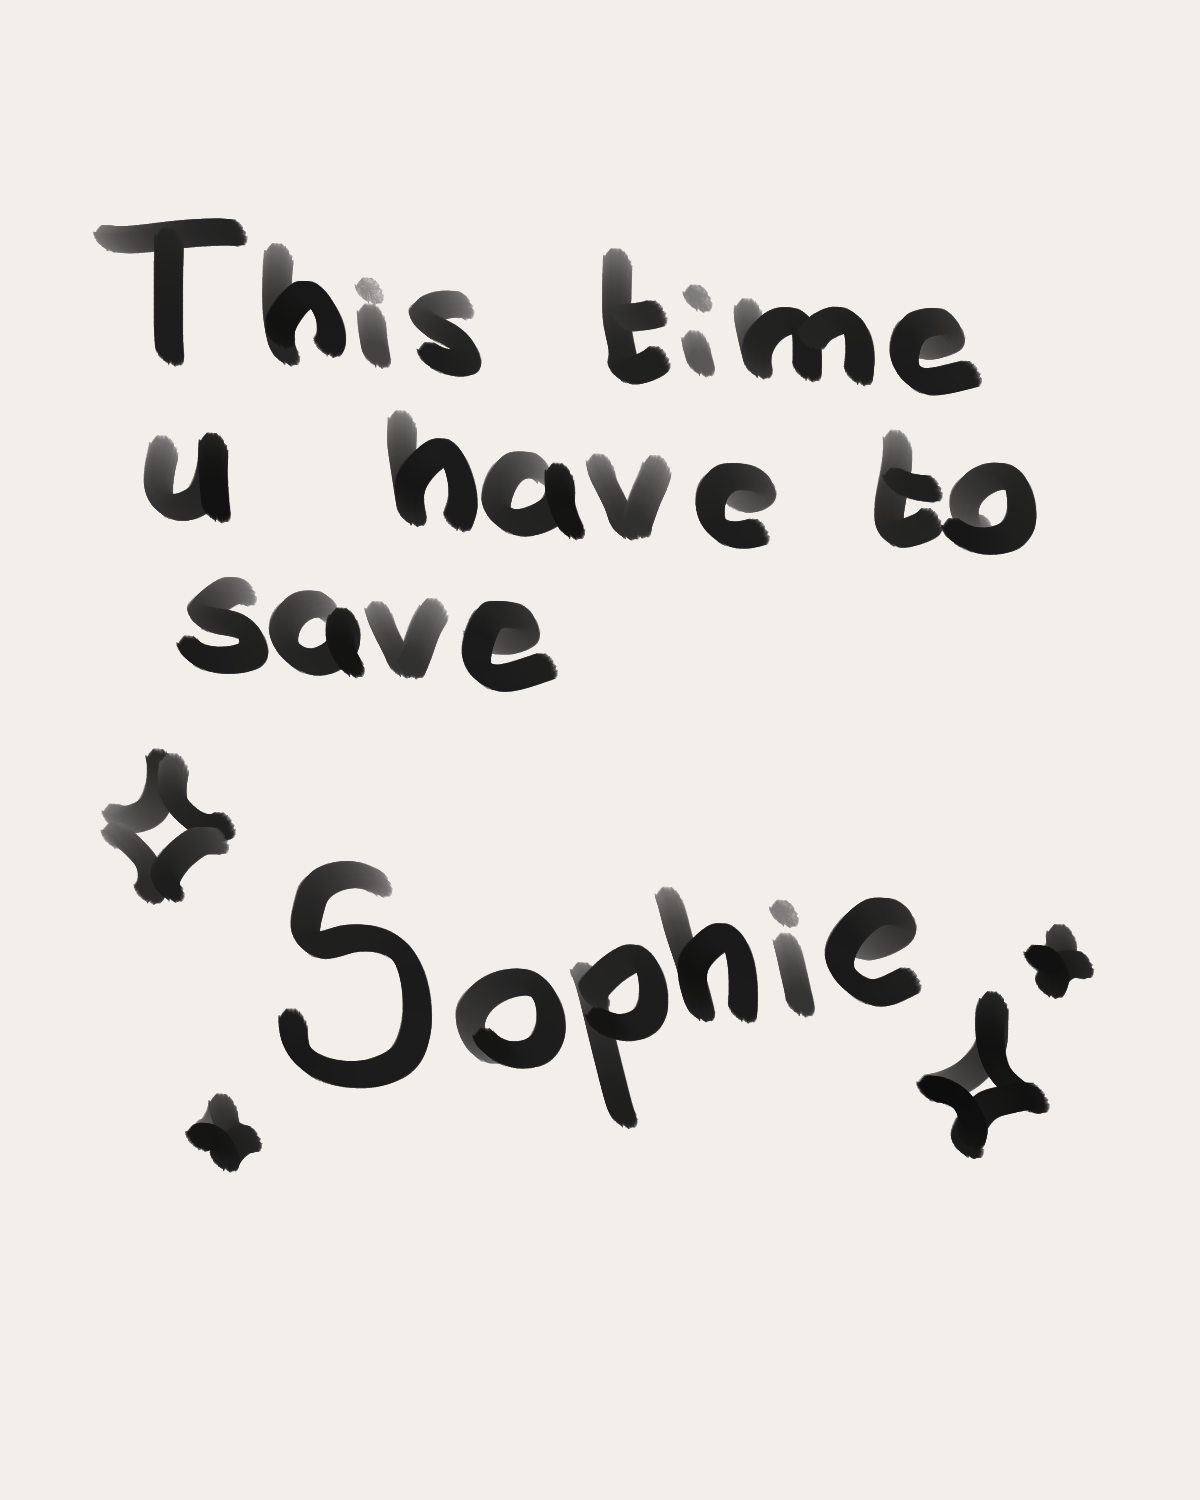 This time
u have to
save
Sophie